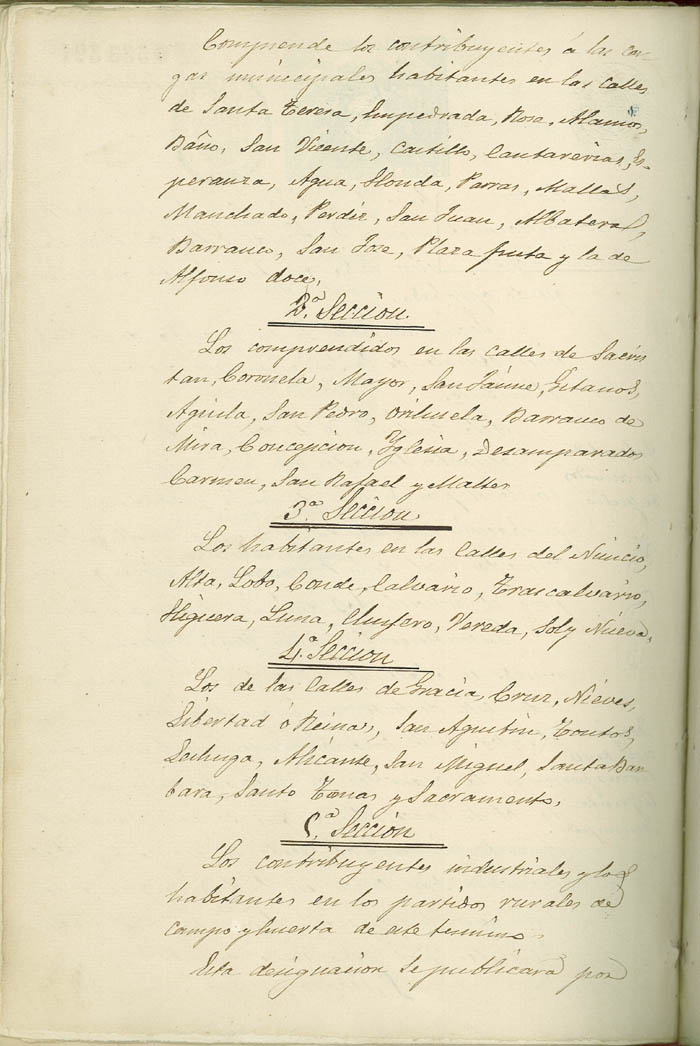 Comprende los contribuyentes á las car-
gas municipales habitantes en las calles
de Santa Teresa, Empedrada, Rosa, Alamos,
Baño, San Vicente, Castillo, Cantarerias, Es-
peranza, Agua, Honda, Parras, Mallas,
Manchado, Perdiz, San Juan, Albateras,
Barranco, San Jose, Plaza fruta y la de
Alfonso doce.
2.ª Seccion.
Los comprendidos en las calles de Sacris
tan, Coronela, Mayor, San Jaime, Gitanos,
Aguila, San Pedro, Orihuela, Barranco de
Mira, Concepcion, Yglesia, Desamparados
Carmen, San Rafael y Maltes
3.ª Seccion.
Los habitantes en las Calles del Nuncio,
Alta, Lobo, Conde, Calvario, Trascalvario,
Higuera, Luna, Chusero, Vereda, Sol y Nueva.
4.ª Seccion
Los de las Calles de Gracia, Cruz, Nieves,
Libertad ó Reina, San Agustin, Tontos,
Lechuga, Alicante, San Miguel, Santa Bar
bara, Santo Tomas y Sacramento.
5.ª Seccion
Los contribuyentes industriales y los
habitantes en los partidos rurales de
campo y huerta de este termino
Esta designacion se publicará por